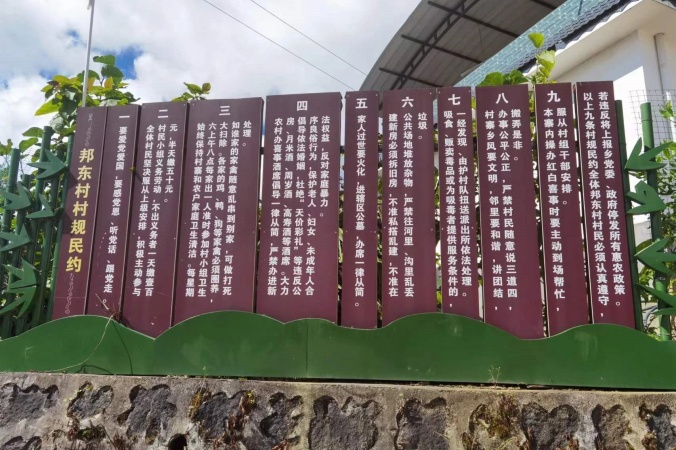 邦东村村规民约
一
要爱党爱国，要感党恩，听党话，跟党走。
二
全体村民坚决服从上级安排，积极主动参与
村民小组义务劳动，不出义务者一天缴壹百
元，半天缴五十元。
三
始终保持村寨和农户家庭卫生清洁。每星期
六上午八点每家出一人准参加村小组卫生
大扫除。各家的鸡、鸭、狗等家禽必须圈养，
如谁家的家禽随意乱串到别家，可做打死
处理。
四
农村办喜事酒席倡导一律从简，严禁办进新
房、月米酒、周岁酒、高寿酒等酒席。大力
倡导依法婚姻，杜绝“天价彩礼”等违反公
序良俗行为，保护老人、妇女、未成年人合
法权益，反对家庭暴力。
五
家人过世要火化，进辖区公墓，办席一律从简。
六
建新房必须拆旧房，不准私搭乱建、不准在
公共场地堆放杂物，严禁往河里、沟里乱丢
垃圾。
七
吸食、贩卖毒品或为吸毒者提供服务条件的，
一经发现，由护村队扭送派出所依法处理。
八
村寨乡风要文明，邻里要和谐，讲团结，
办事公平公正，严禁村民随意说三道四，
搬弄是非。
九
本寨内操办红白喜事时要主动到场帮忙，
服从村组干部安排。
以上九条村规民约全体邦东村村民必须认真遵守，
若违反将上报乡党委、政府停发所有惠农政策。